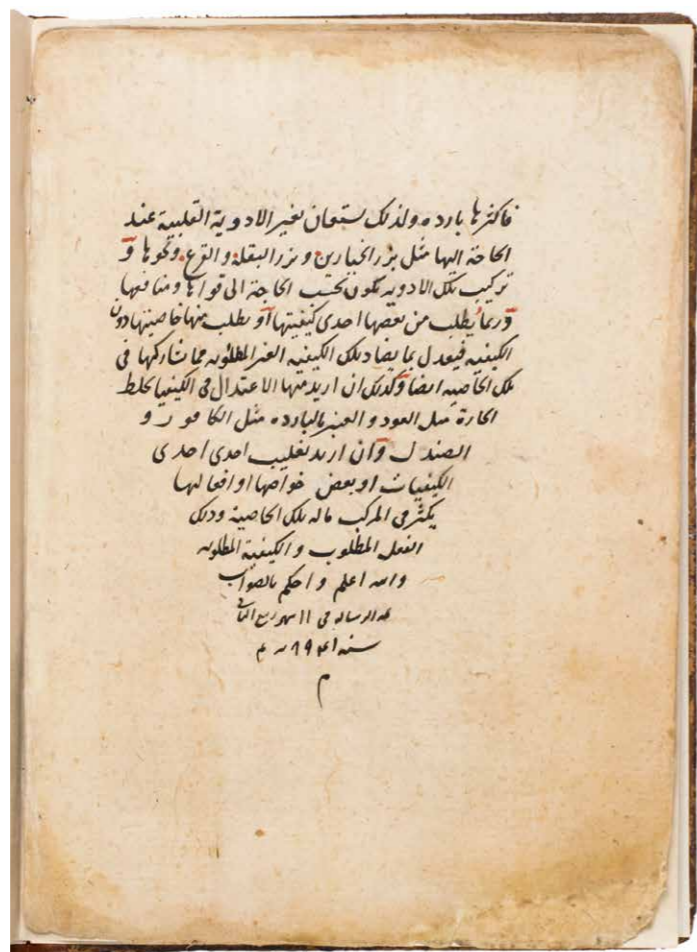 فاكثرها بارده ولذلك يستعان بغير الادوية القلبية عند
الحاجة اليها مثل بزر الخيارين وبزر البقلة والقرع ونحوها و
تركيب تلك الادويه يكون بحسب الحاجة الى قواها ومنافعها
وربما يطلب من بعضها احدى كيفيتها او يطلب منها خاصيتها دون
الكيفيه فيعدل بما يضاد تلك الكيفيه الغير المطلوبه مما يشاركها فى
تلك الخاصيه ايضا وكذلك ان اريد منها الاعتدال فى الكيفيا يخلط
الحارة مثل العود و العنبر بالبارده مثل الكافور و
الصندل وان اريد تغليب احدى احدى
الكيفيات او بعض خواصها او افعالها
يكثر فى المركب ماله تلك الخاصية وذلك
الفعل المطلوب و الكيفية المطلوبه
والله اعلم و احكم بالصواب
الرساله فى ١١ شهر ربيع الثانى
سنه
م